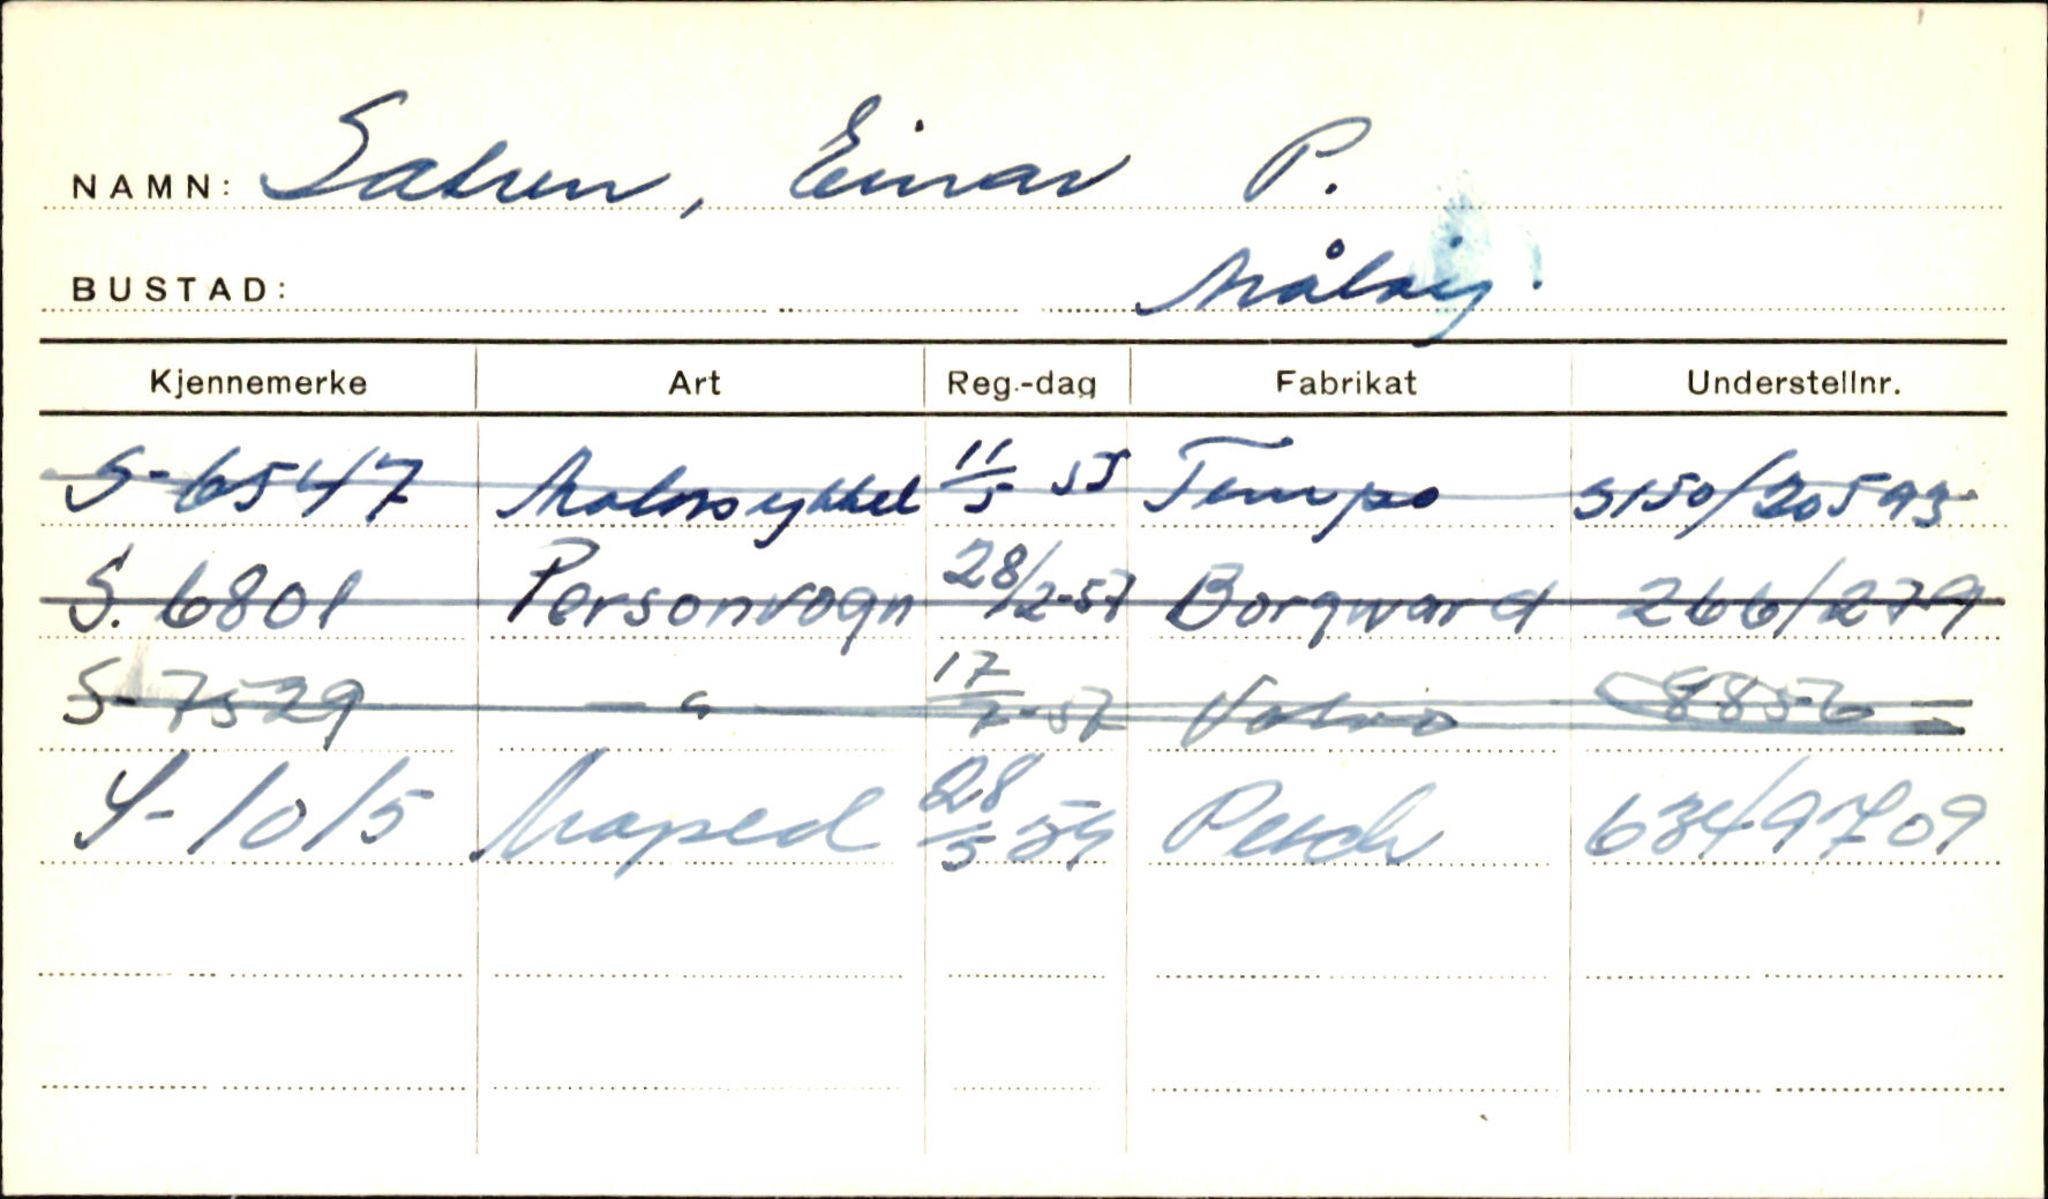 NAMN: Satren, Einar P.
BUSTAD: Måløy.
Kjennemerke Art Reg.-dag Fabrikat Understellnr.
S-6547 Motorsykkel 11/5 55 Tempo 3150/20593
S. 6801 Personvogn 28/2-57 Borgward 266/279
S-7529 — " — 17/7-57 Volvo 8856
S-1015 Moped 28/5 59 634/9709